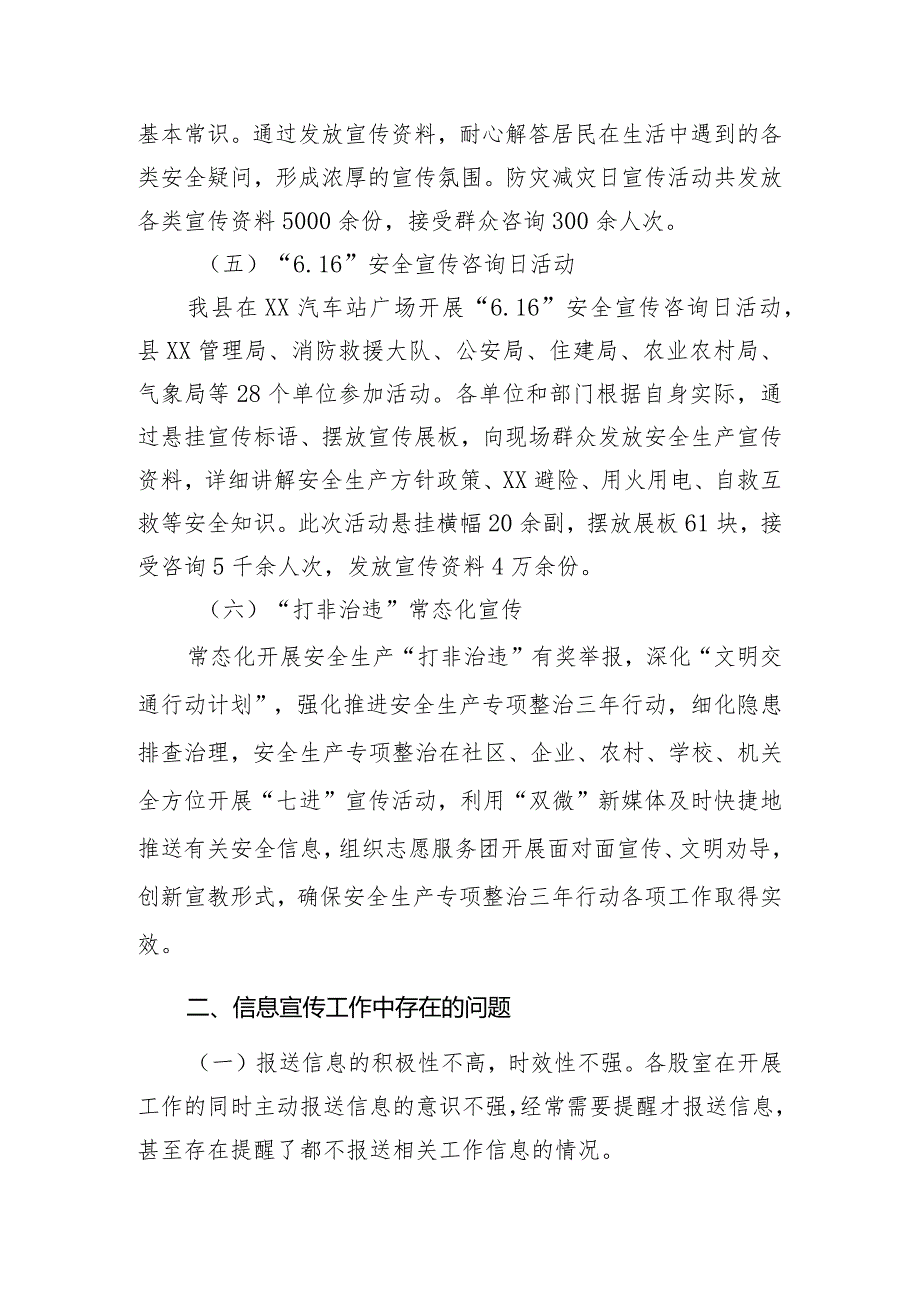 基本常识。通过发放宣传资料，耐心解答居民在生活中遇到的各
类安全疑问，形成浓厚的宣传氛围。防灾减灾日宣传活动共发放
各类宣传资料 5000 余份，接受群众咨询 300 余人次。
（五）“6.16”安全宣传咨询日活动
我县在 XX 汽车站广场开展“6.16”安全宣传咨询日活动，
县 XX 管理局、消防救援大队、公安局、住建局、农业农村局、
气象局等 28 个单位参加活动。各单位和部门根据自身实际，通
过悬挂宣传标语、摆放宣传展板，向现场群众发放安全生产宣传
资料，详细讲解安全生产方针政策、XX 避险、用火用电、自救互
救等安全知识。此次活动悬挂横幅 20 余副，摆放展板 61 块，接
受咨询 5 千余人次，发放宣传资料 4 万余份。
（六）“打非治违”常态化宣传
常态化开展安全生产“打非治违”有奖举报，深化“文明交
通行动计划”，强化推进安全生产专项整治三年行动，细化隐患
排查治理，安全生产专项整治在社区、企业、农村、学校、机关
全方位开展“七进”宣传活动，利用“双微”新媒体及时快捷地
推送有关安全信息，组织志愿服务团开展面对面宣传、文明劝导，
创新宣教形式，确保安全生产专项整治三年行动各项工作取得实
效。
二、信息宣传工作中存在的问题
（一）报送信息的积极性不高，时效性不强。各股室在开展
工作的同时主动报送信息的意识不强，经常需要提醒才报送信息，
甚至存在提醒了都不报送相关工作信息的情况。